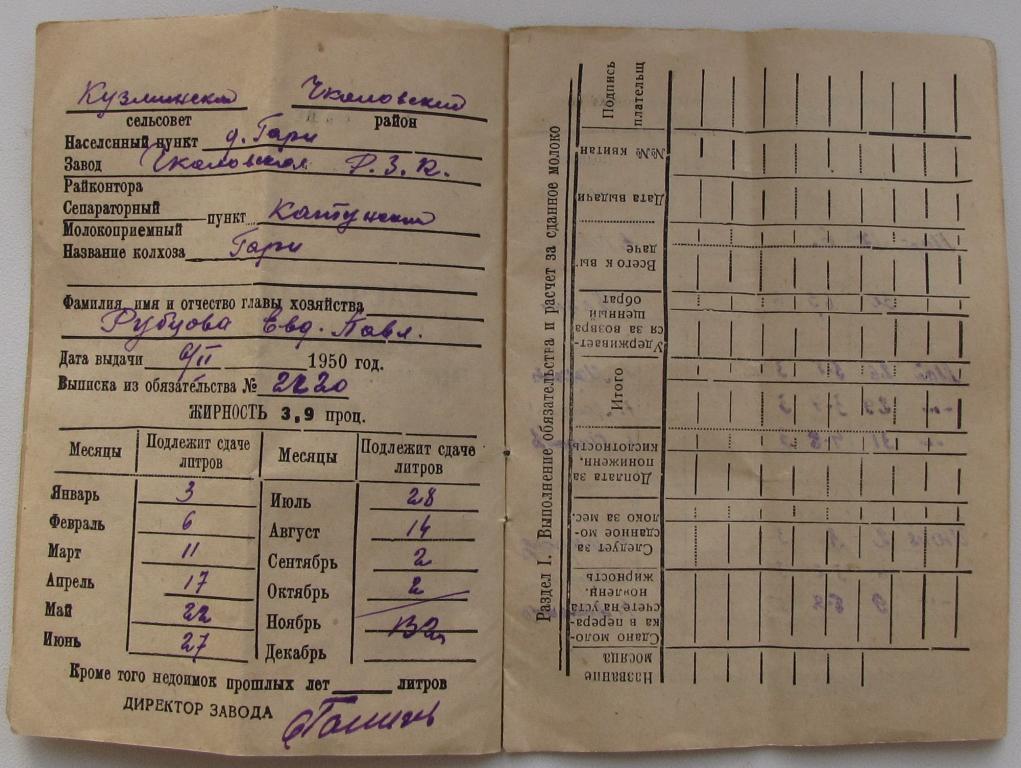 Кузминский Чкаловский
сельсовет район
Населенный пункт д. Гари
Завод Чкаловский
Райконтора
Сепараторный
пункт
Молокоприемный
Название колхоза Гари
Фамилия, имя и отчество главы хозяйства
Евд. Павл.
Дата выдачи 6/II 1950 год.
Выписка из обязательства № 2220
ЖИРНОСТЬ 3,9 проц.
Месяцы Подлежит сдаче литров Месяцы Подлежит сдаче литров
Январь 3 Июль 28
Февраль 6 Август 14
Март 11 Сентябрь 2
Апрель 17 Октябрь 2
Май 22 Ноябрь
Июнь 27 Декабрь
132
Кроме того недоимок прошлых лет литров
ДИРЕКТОР ЗАВОДА
Раздел I. Выполнение обязательства и расчет за сданное молоко
Название месяца
Сдано молока в пересчете на установленн. жирность
Следует за сданное молоко за мес.
Доплата за понижен. кислотность
Итого
Удерживается за возвращенный обрат
Всего к выдаче
Дата выдачи
№№ квитан
Подпись плательщ